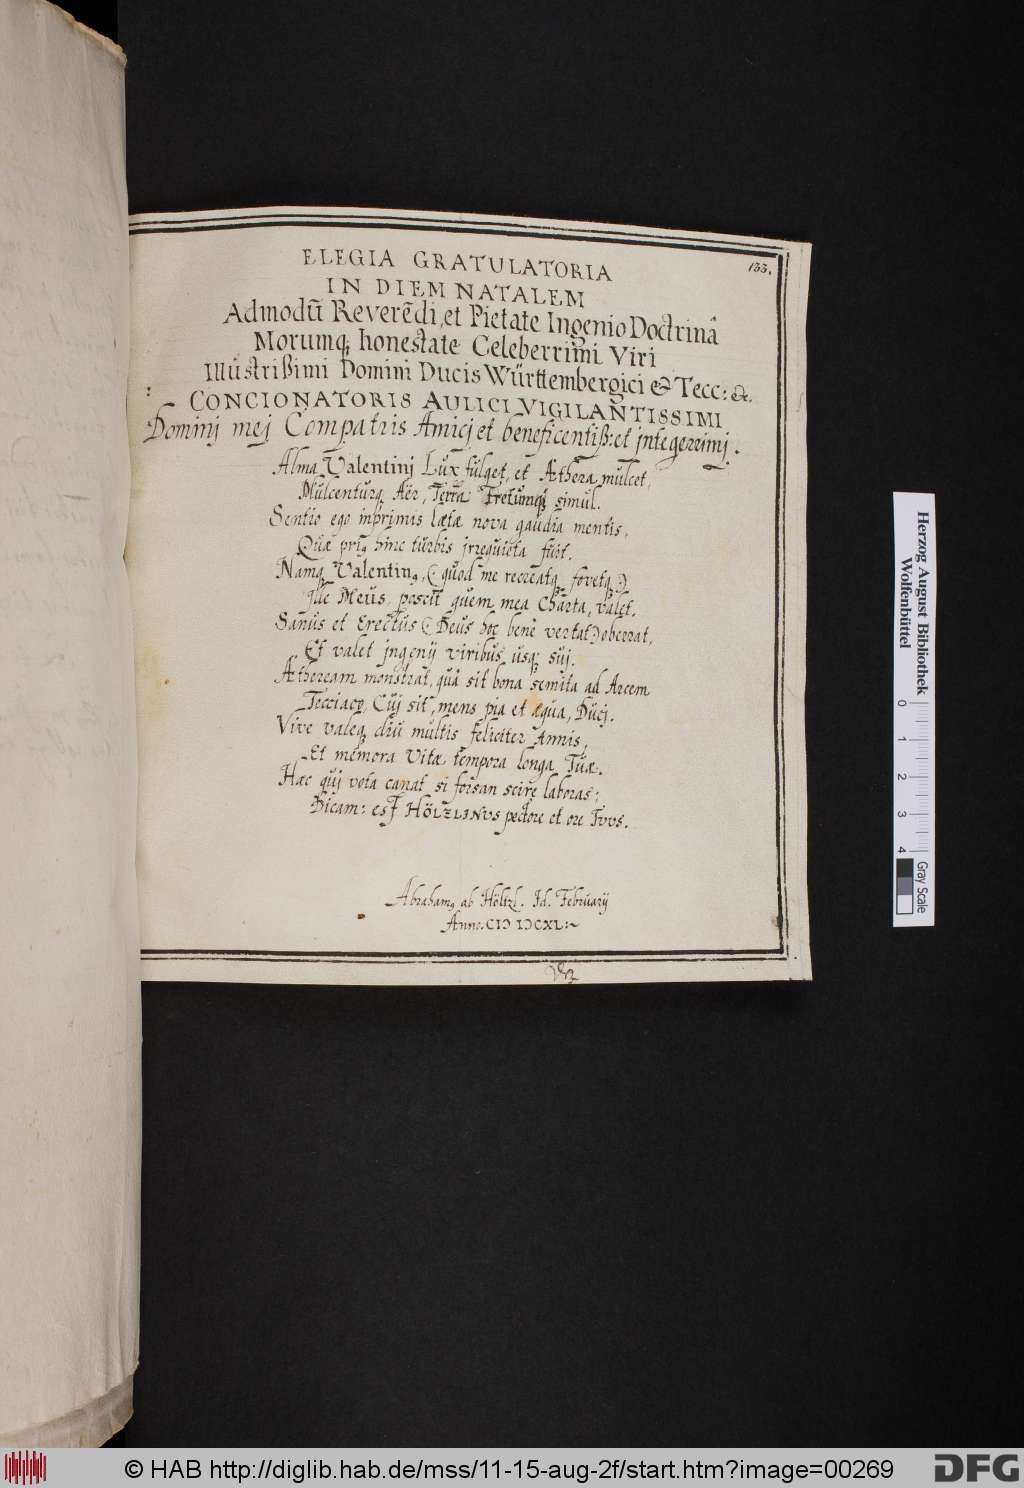 133.
ELEGIA GRATULATORIA
IN DIEM NATALEM
Admodū Reverēdi, et Pietate Ingenio Doctrinâ
Morumq; honestate Celeberrimi Viri
Illustrißimi Domini Ducis Württembergici & Tecc: &.
CONCIONATORIS AULICI VIGILANTISSIMI
Dominj mej Compatris Amicj et beneficentiß: et jntegerrimj.
Alma Valentinj Lux fulget, et Æthera mulcet,
Mulcenturq Aër, Terra Fretumq; simul.
Sentio ego inprimis lætæ nova gaudia mentis,
Quæ priꝰ hinc turbis jrrequieta fuit.
Namq Valentinꝰ, (quod me recreatq fovetq)
Ille Meus, poscit quem mea Charta, valet.
Sanus et Erectus (Deus hoc benè vertat) oberrat,
Et valet jngenij viribus usq; suj.
Ætheream monstrat, quâ sit bona semita ad Arcem
Tecciaco, Cuj sit, mens pia et æqua, Ducj.
Vive valeq diu multis feliciter Annis,
Et memora Vitæ tempora longa Tuæ.
Hæc quj vota canat si forsan scire laboras;
Dicam: est HÖLZLINVS pectore et ore Tvvs.
Abrahamꝰ ab Höltzl. Id. Februarij
Anno. CIƆ IƆCXL:~
Herzog August Bibliothek
Wolfenbüttel
0 1 2 3 4
Gray Scale
© HAB http://diglib.hab.de/mss/11-15-aug-2f/start.htm?image=00269
DFG